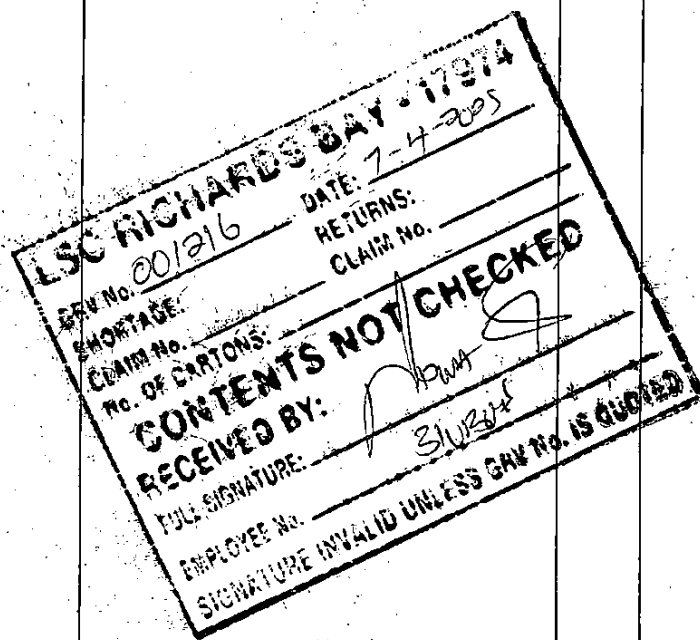 LSC RICHARDS BAY - 17974
GRV No. 001216 DATE: 7-4-2005
SHORTAGE: RETURNS:
CLAIM No. CLAIM No.
No. OF CARTONS:
CONTENTS NOT CHECKED
RECEIVED BY:
FULL SIGNATURE:
EMPLOYEE No.
SIGNATURE INVALID UNLESS GRV No. IS QUOTED